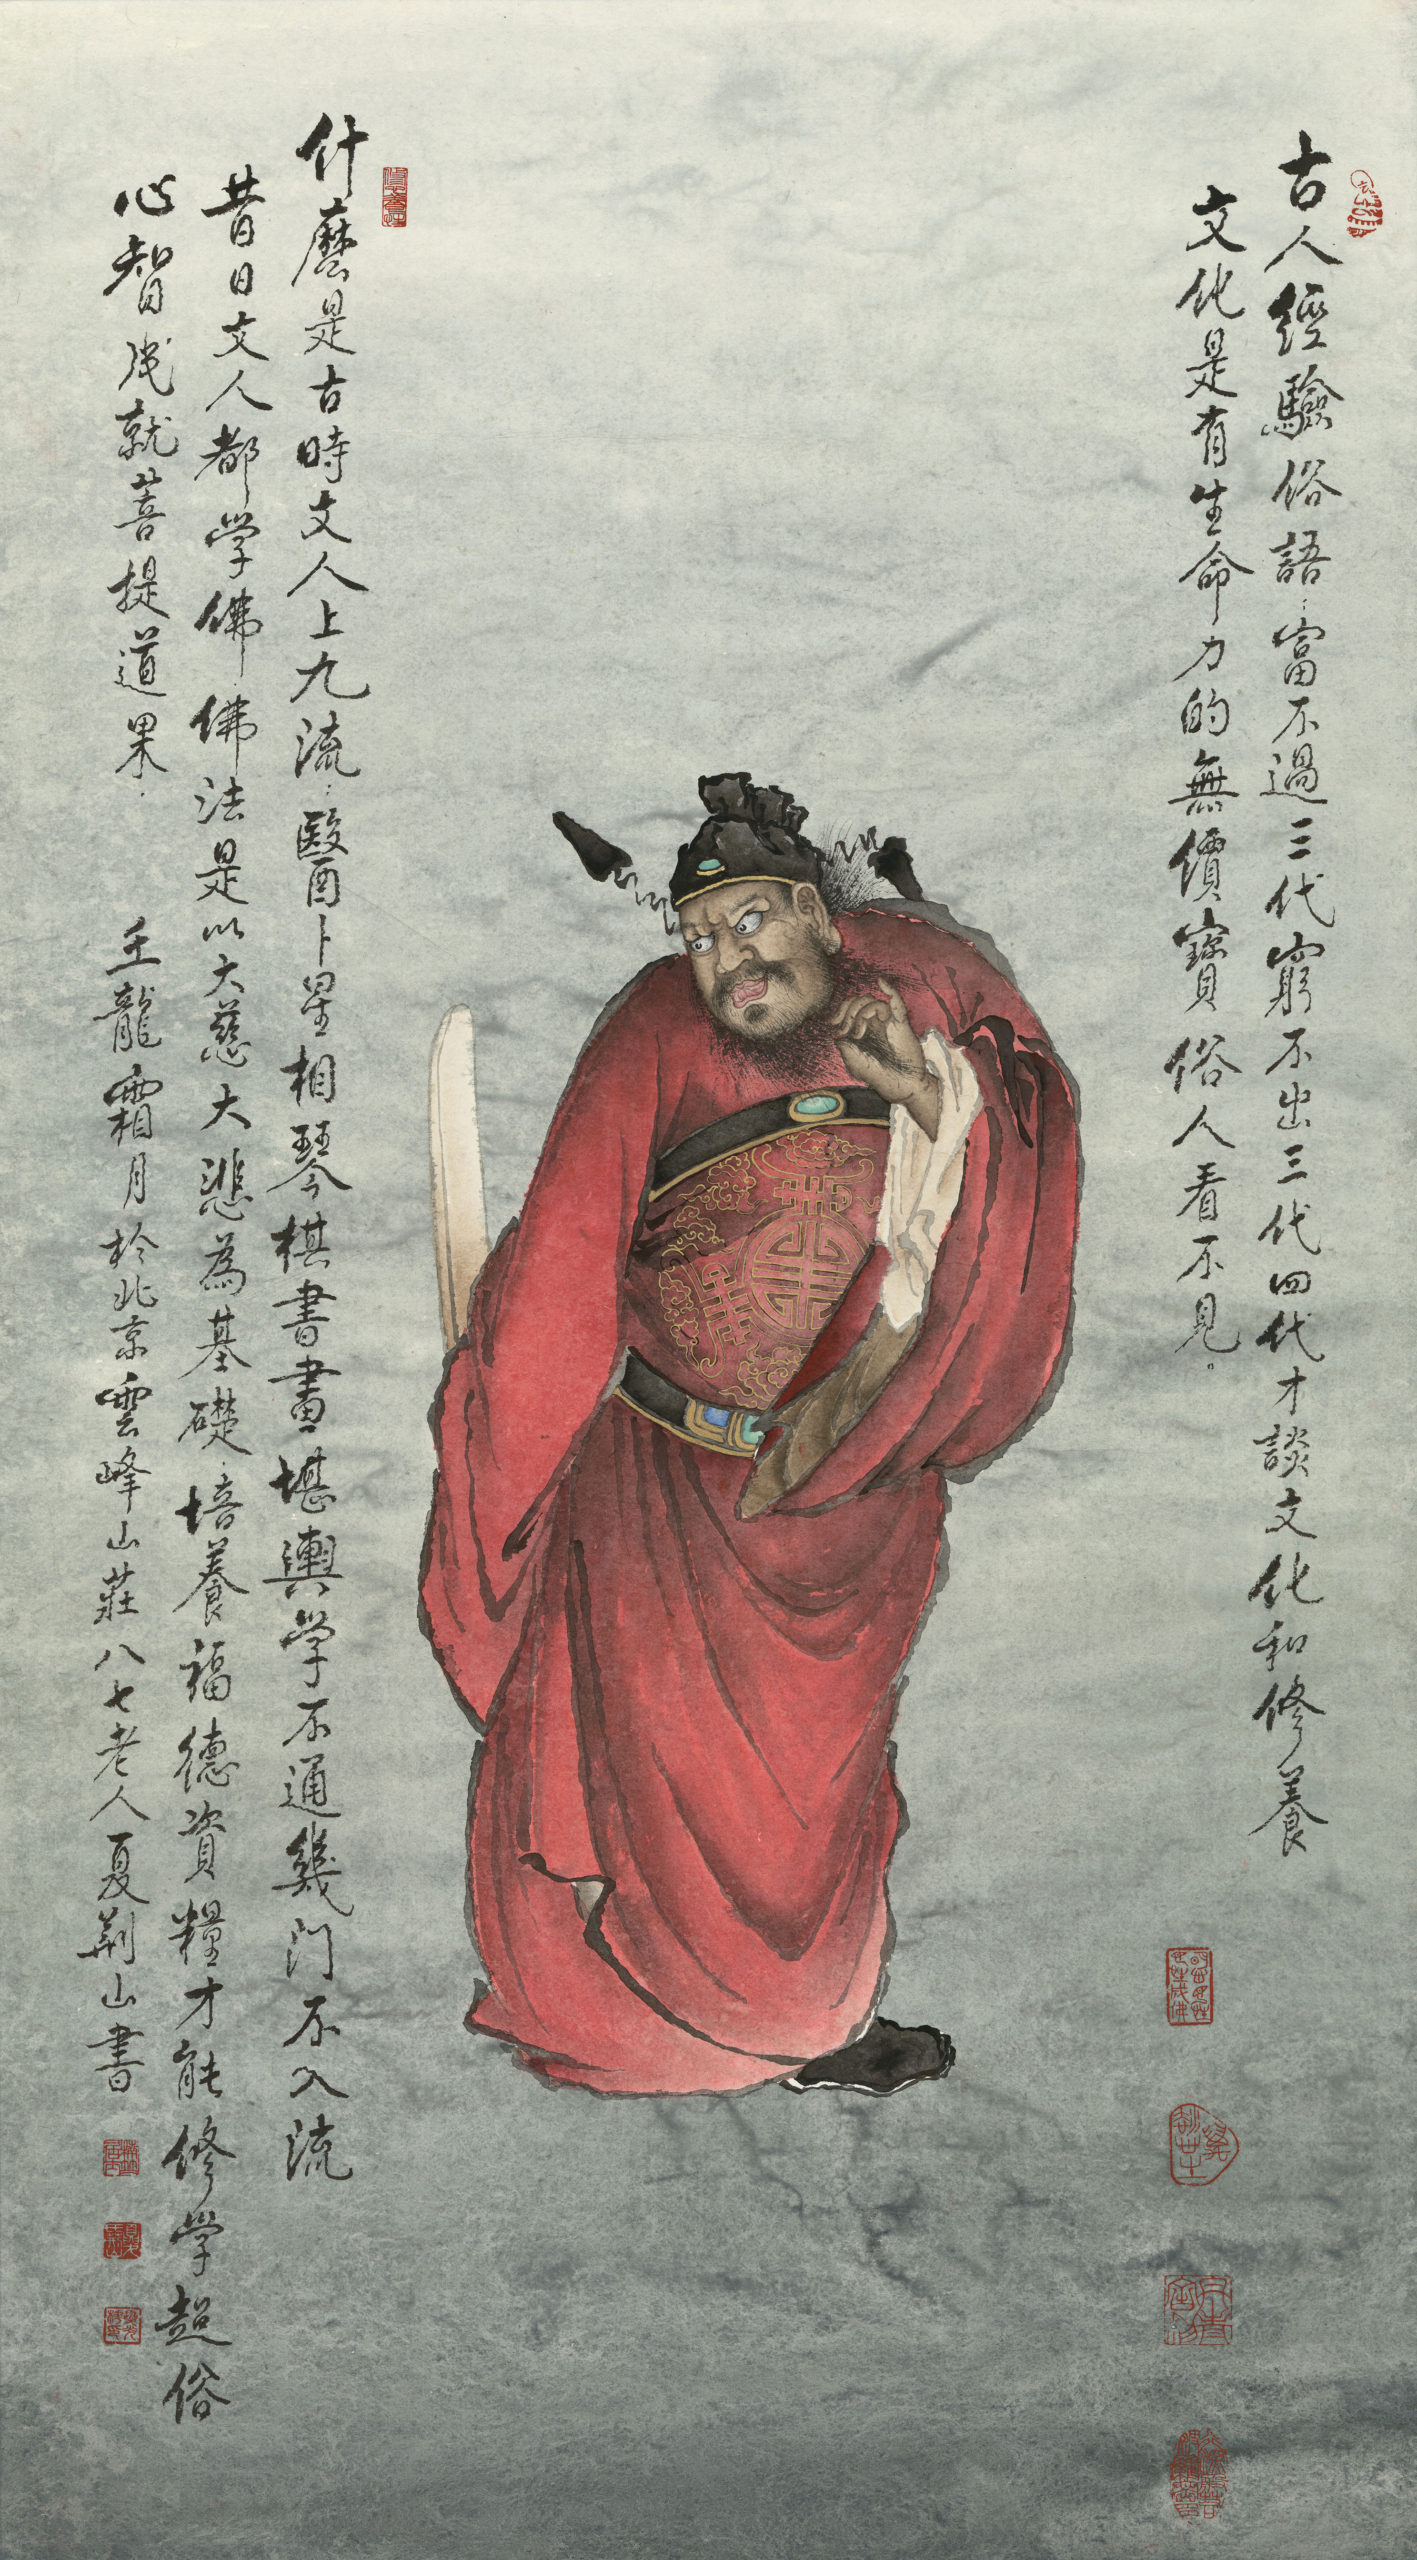 古人經驗俗語：富不過三代窮不出三代四代才談文化和修養
文化是有生命力的無價寶俗人看不見。
什麼是古時文人上九流：醫卜星相琴棋書畫堪輿学不通幾門不入流
昔日文人都学佛．佛法是以大慈大悲為基礎．培養福德資糧才能修学超俗
心智成就菩提道果．
壬龍霜月於北京雲峰山莊八七老人夏荊山書